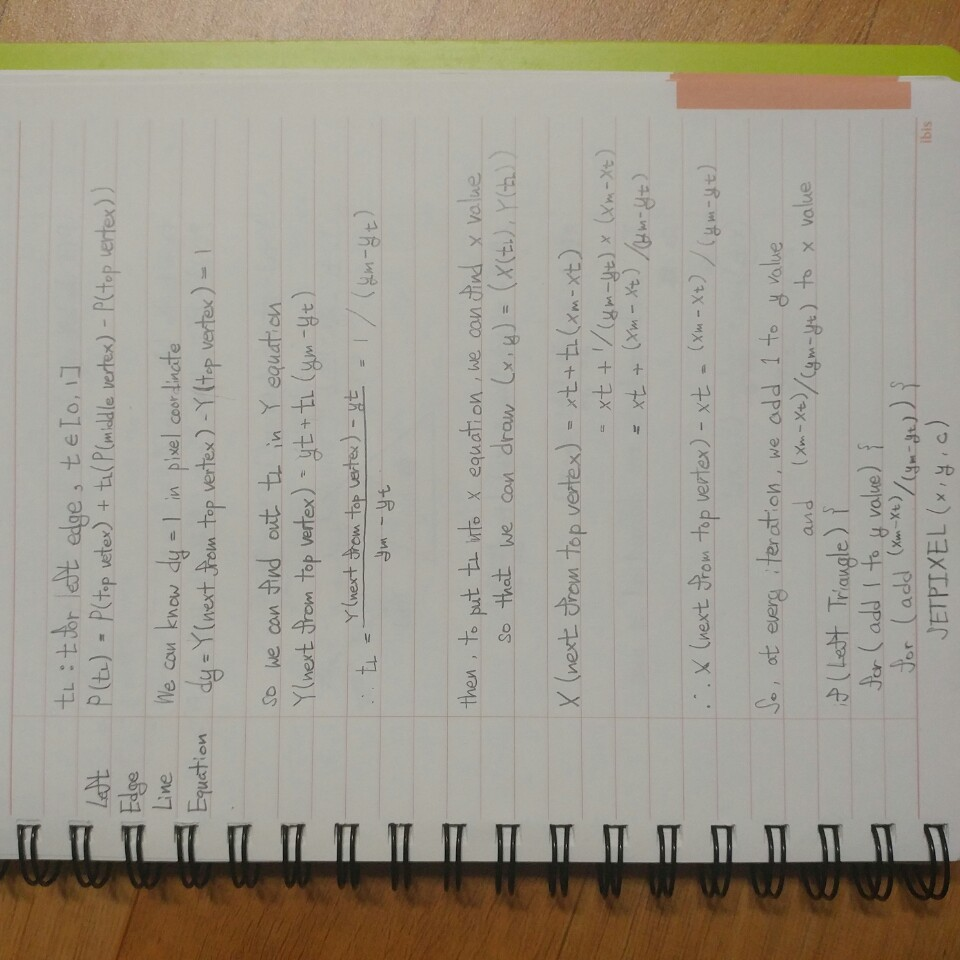 ibis
tL : t for left edge, t ∈ [0, 1]
Left P(tL) = P(top vetex) + tL(P(middle vertex) - P(top vertex))
Edge
Line We can know dy = 1 in pixel coordinate
Equation dy = Y(next from top vertex) - Y(top vertex) = 1
so we can find out tL in Y equation
Y(next from top vertex) = yt + tL (ym - yt)
∴ tL = Y(next from top vertex) - yt / ym - yt = 1 / (ym - yt)
then, to put tL into x equation, we can find x value
so that we can draw (x, y) = (X(tL), Y(tL))
X (next from top vertex) = xt + tL (xm - xt)
= xt + 1/(ym - yt) × (xm - xt)
= xt + (xm - xt) / (ym - yt)
∴ X (next from top vertex) - xt = (xm - xt) / (ym - yt)
So, at every iteration, we add 1 to y value
and (xm - xt)/(ym - yt) to x value
if (Left Triangle) {
for (add 1 to y value) {
for (add (xm - xt)/(ym - yt)) {
SETPIXEL (x, y, c)